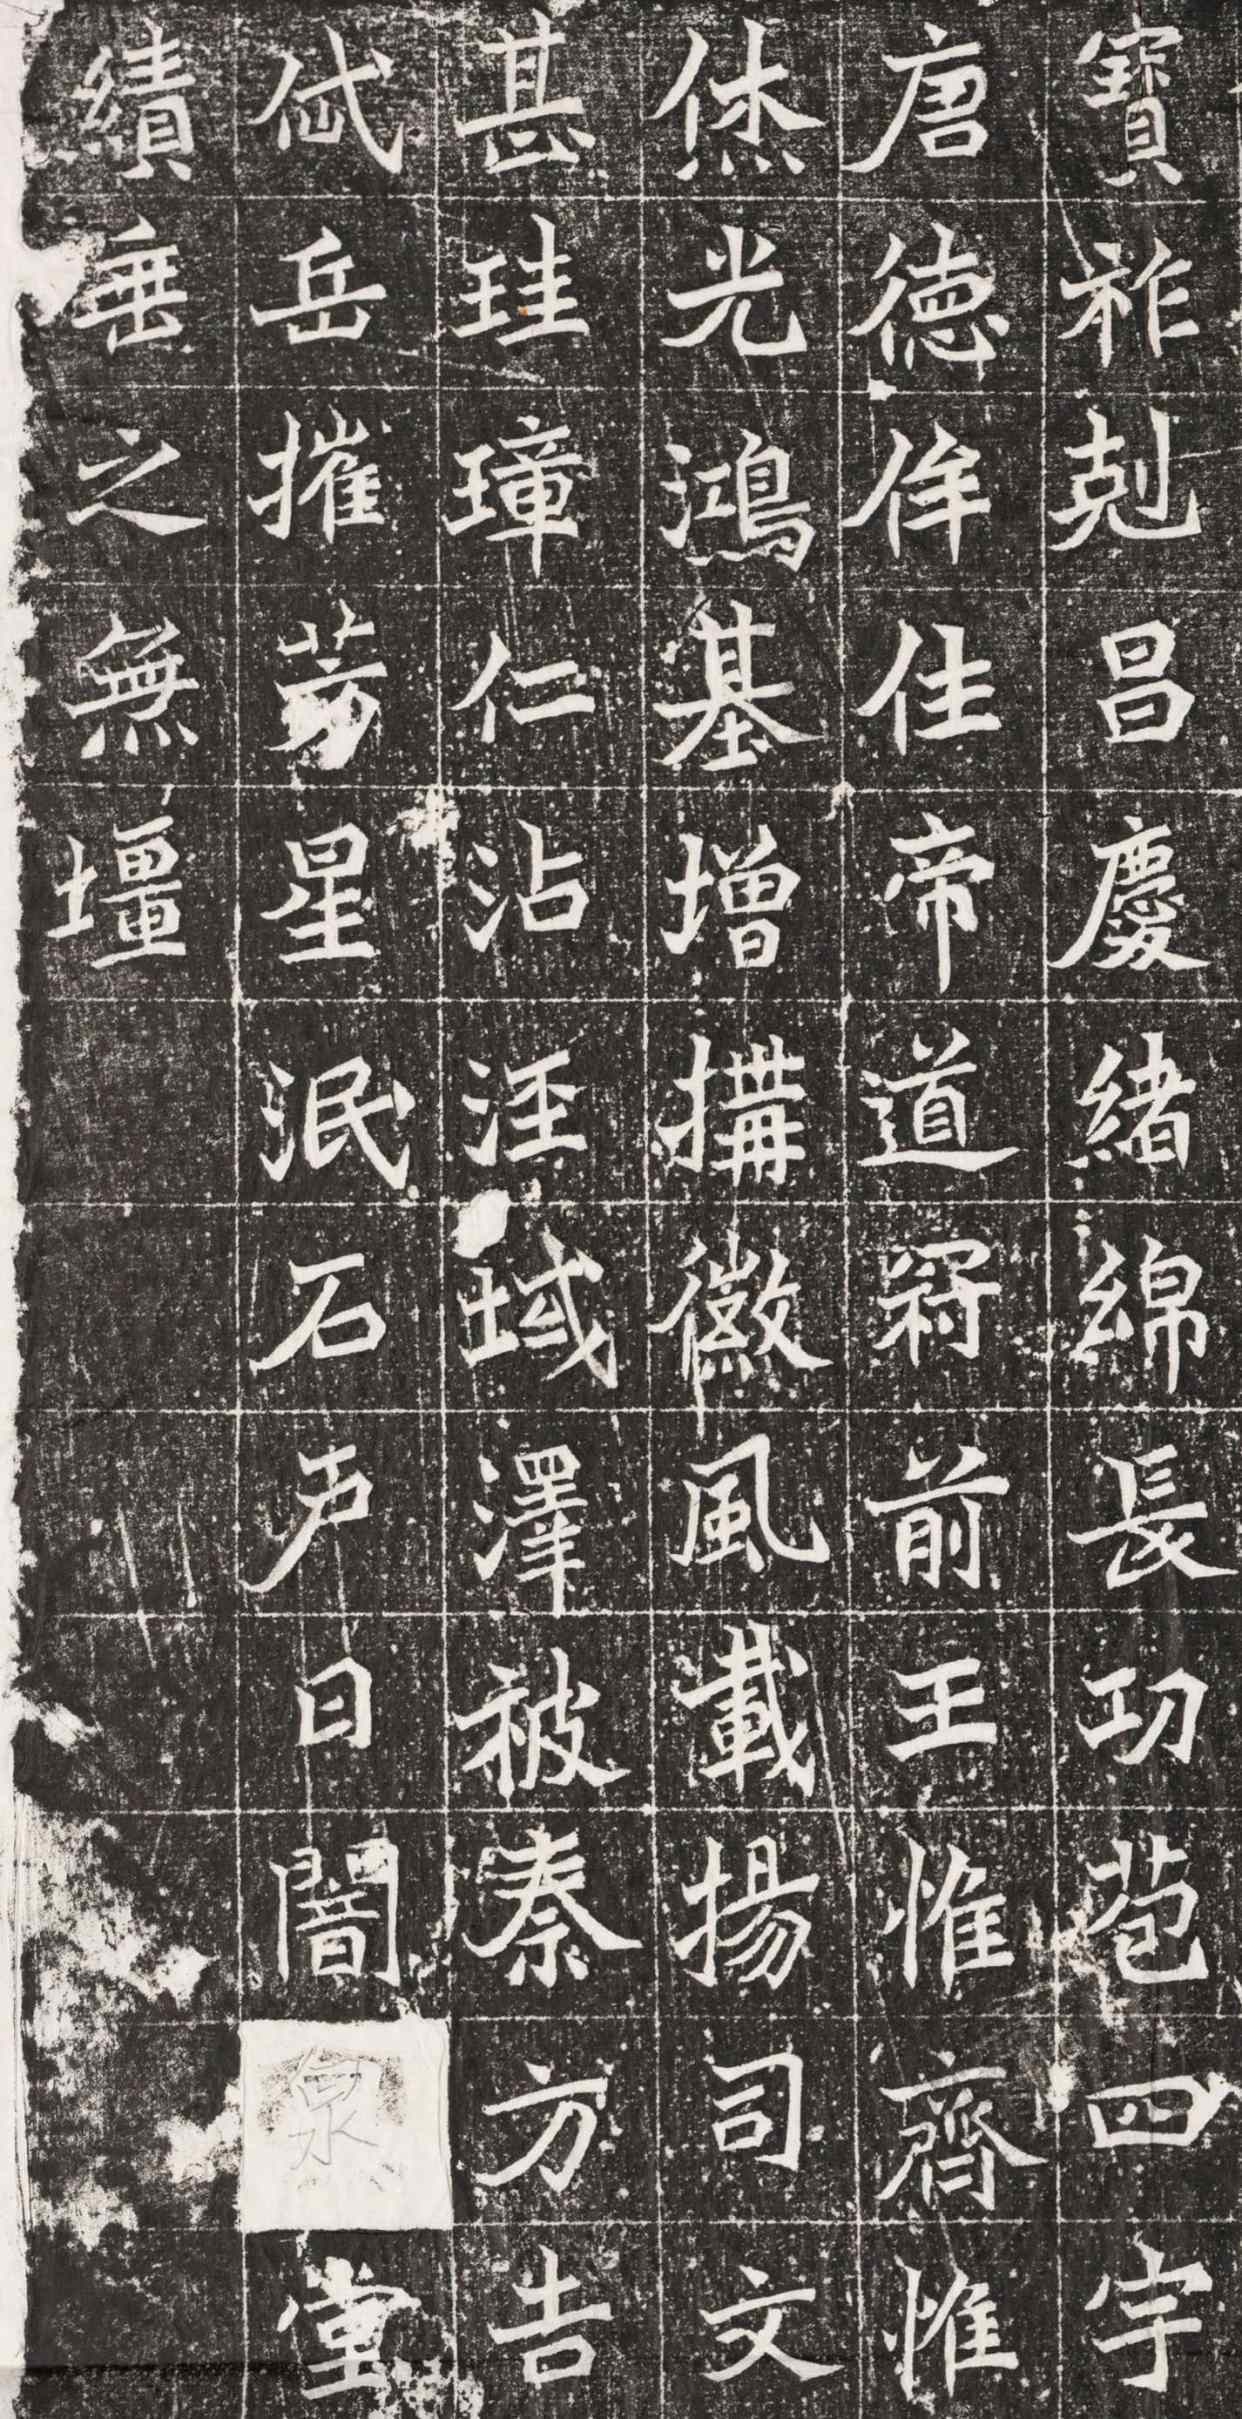 寶祚剋昌慶緒綿長功苞四宇
唐德侔佳帝道冠前王惟齊惟
烋光鴻基增搆徽風載揚司文
甚珪璋仁沾渥域澤被秦方告
岱岳摧芳星泯石戶日闇泉堂
績垂之無壃